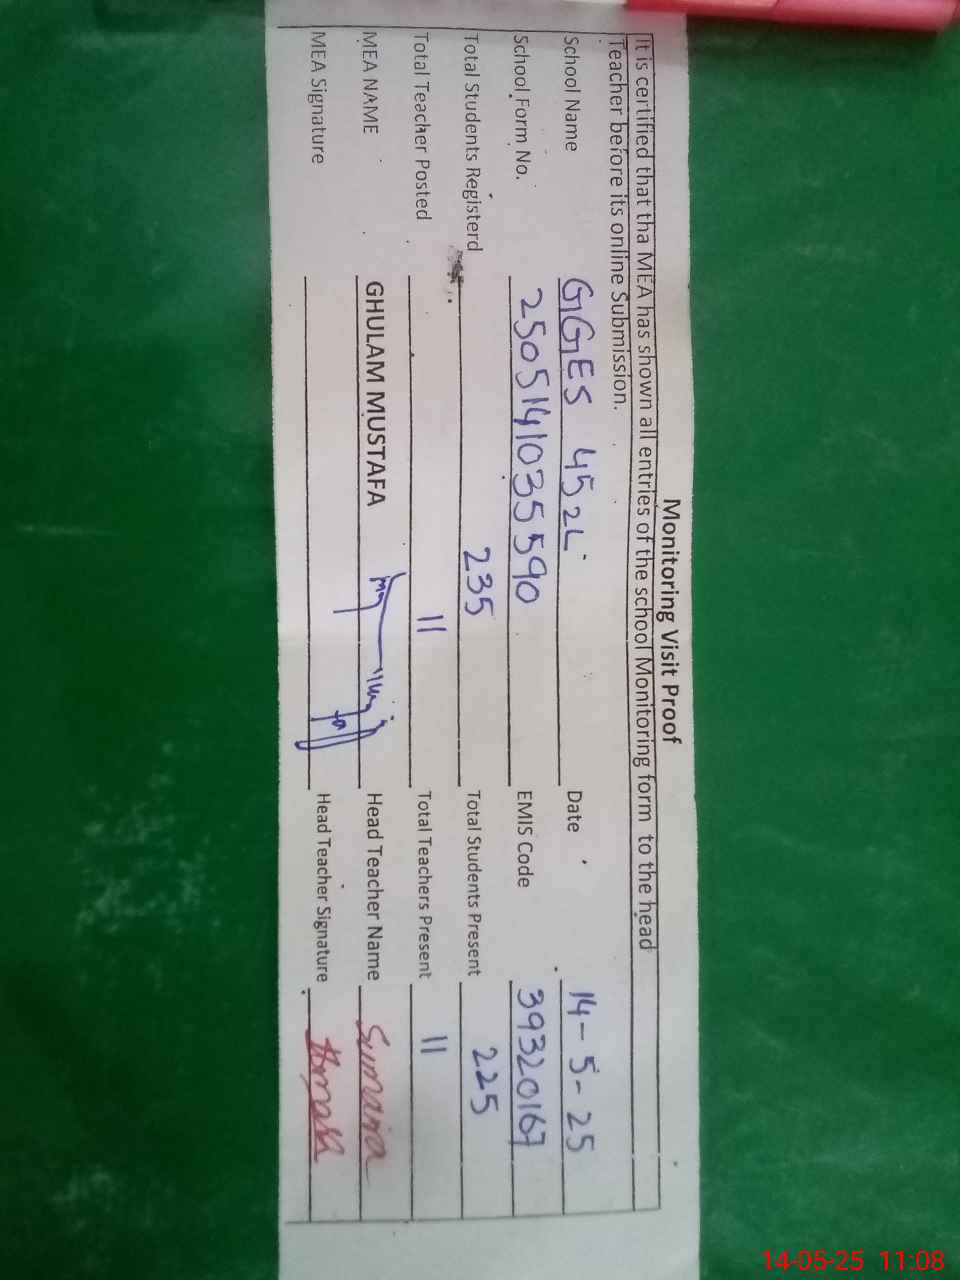 Monitoring Visit Proof
It is certified that tha MEA has shown all entries of the school Monitoring form to the head
Teacher before its online Submission.
School Name GGES 45 2L Date 14-5-25
School Form No. 2505141035590 EMIS Code 39320167
Total Students Registerd 235 Total Students Present 225
Total Teacher Posted 11 Total Teachers Present 11
MEA NAME GHULAM MUSTAFA Head Teacher Name Sumaira
MEA Signature Head Teacher Signature
14-05-25 11:08